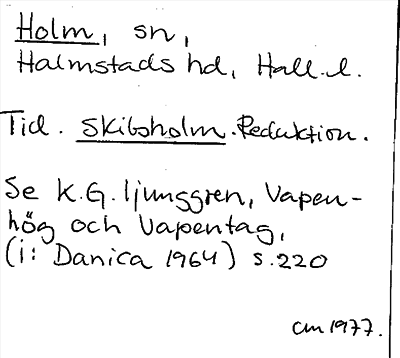 Holm, sn,
Halmstads hd, Hall.l.
Tid. Skibsholm. Reduktion.
Se K.G. ljunggren, Vapen-
hög och Vapentag,
(i: Danica 1964) s.220
cm 1977.